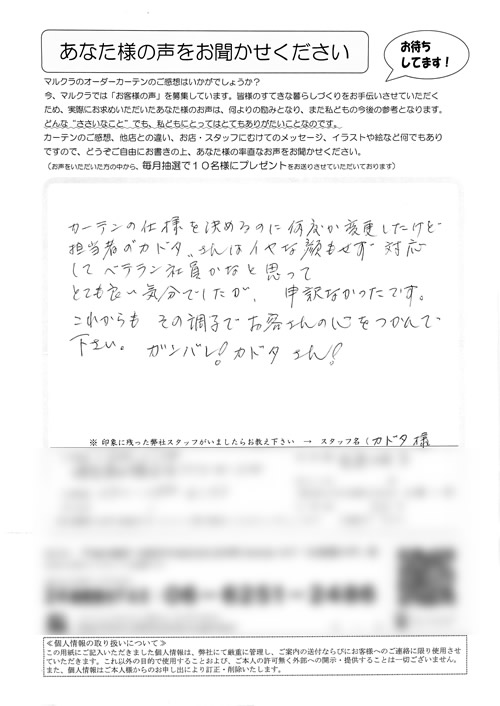 あなた様の声をお聞かせください
お待ち
してます!
マルクラのオーダーカーテンのご感想はいかがでしょうか?
今、マルクラでは「お客様の声」を募集しています。皆様のすてきな暮らしづくりをお手伝いさせていただく
ため、実際にお求めいただいたあなた様のお声は、何よりの励みとなり、また私どもの今後の参考となります。
どんな“ささいなこと”でも、私どもにとってはとてもありがたいことなのです。
カーテンのご感想、他店との違い、お店・スタッフにむけてのメッセージ、イラストや絵など何でもあり
ですので、どうぞご自由にお書きの上、あなた様の率直なお声をお聞かせください。
（お声をいただいた方の中から、毎月抽選で10名様にプレゼントをお送りさせていただいております）
カーテンの仕様を決めるのに何度か変更したけど
担当者の“カドタ”さんはイヤな顔もせず 対応
して ベテラン社員かなと思って
とても良い気分でしたが、申訳なかったです。
これからも その調子でお客さんの心をつかんで
下さい。 ガンバレ!カドタさん!
※ 印象に残った弊社スタッフがいましたらお教え下さい → スタッフ名（カドタ様
06-6251-2486
≪個人情報の取り扱いについて≫
この用紙にご記入いただきました個人情報は、弊社にて厳重に管理し、ご案内の送付ならびにお客様へのご連絡に限り使用させ
ていただきます。これ以外の目的で使用することおよび、ご本人の許可無く外部への開示・提供することは一切ございません。
また、個人情報はご本人様からのお申し出により訂正・削除いたします。